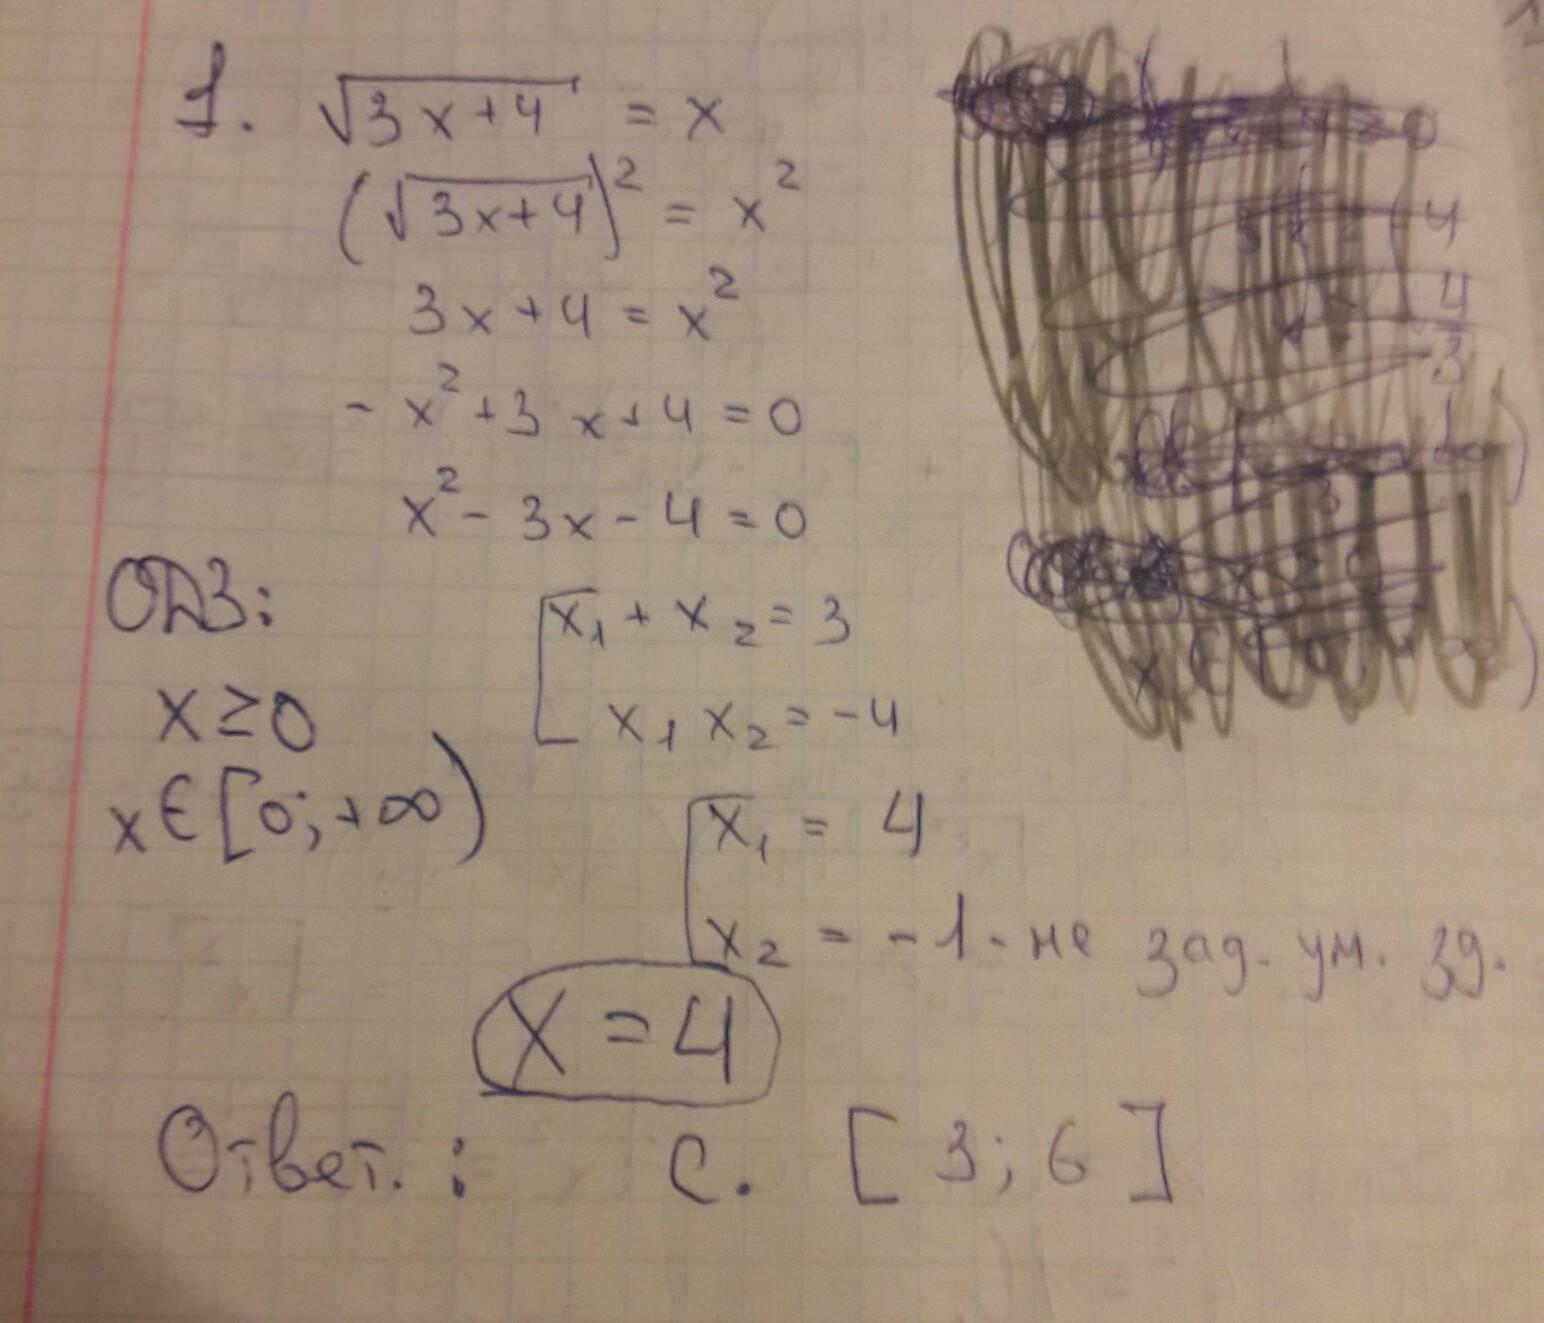 1. √3x+4 = x
(√3x+4)² = x²
3x+4 = x²
- x² + 3x + 4 = 0
x² - 3x - 4 = 0
ОДЗ:
x ≥ 0
x ∈ [0; +∞)
[x₁ + x₂ = 3
x₁ x₂ = -4
[x₁ = 4
x₂ = -1 - не зад. ум. зд.
x = 4
Ответ. : C. [3; 6]